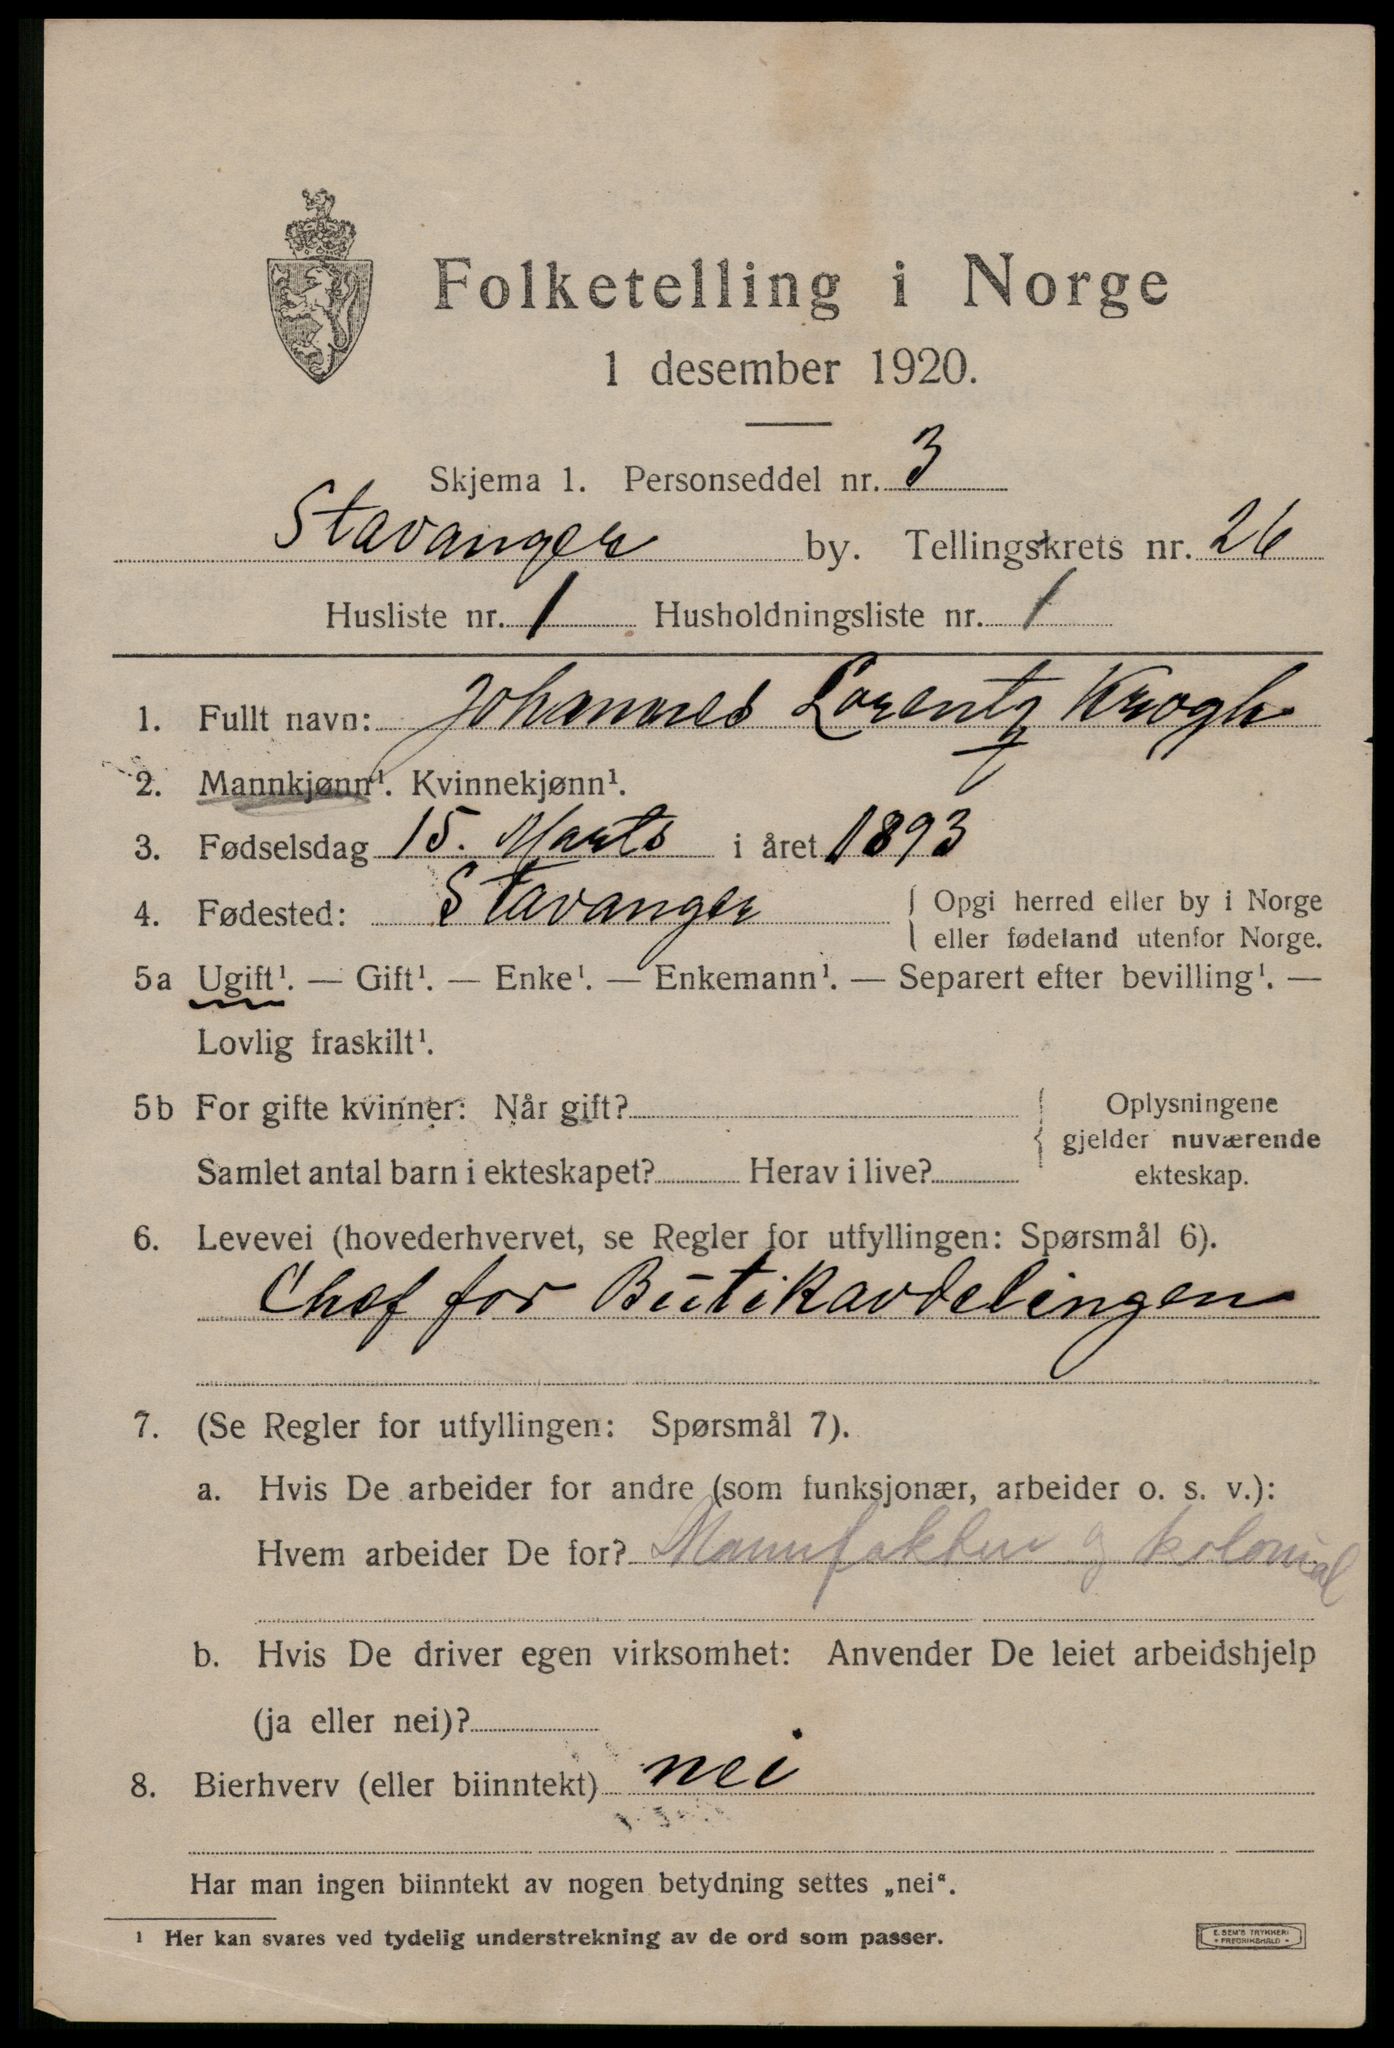 Folketelling i Norge
1 desember 1920.
Skjema 1. Personseddel nr. 3
Stavanger by. Tellingskrets nr. 26
Husliste nr. 1 Husholdningsliste nr. 1
1. Fullt navn: Johannes Lorentz Krogh
2. Mannkjønn¹. Kvinnekjønn¹.
3. Fødselsdag 15. Marts i året 1893
4. Fødested: Stavanger { Opgi herred eller by i Norge
eller fødeland utenfor Norge.
5a Ugift¹. — Gift¹. — Enke¹. — Enkemann¹. — Separert efter bevilling¹. —
Lovlig fraskilt¹.
5b For gifte kvinner: Når gift? { Oplysningene
gjelder nuværende
Samlet antal barn i ekteskapet? Herav i live? ekteskap.
6. Levevei (hovederhvervet, se Regler for utfyllingen: Spørsmål 6).
Chef for Butikavdelingen
7. (Se Regler for utfyllingen: Spørsmål 7).
a. Hvis De arbeider for andre (som funksjonær, arbeider o. s. v.):
Hvem arbeider De for? Manufaktur og kolonial
b. Hvis De driver egen virksomhet: Anvender De leiet arbeidshjelp
(ja eller nei)?
8. Bierhverv (eller biinntekt) nei
Har man ingen biinntekt av nogen betydning settes „nei“.
¹ Her kan svares ved tydelig understrekning av de ord som passer.
E. SEM'S TRYKKERI
FREDRIKSHALD